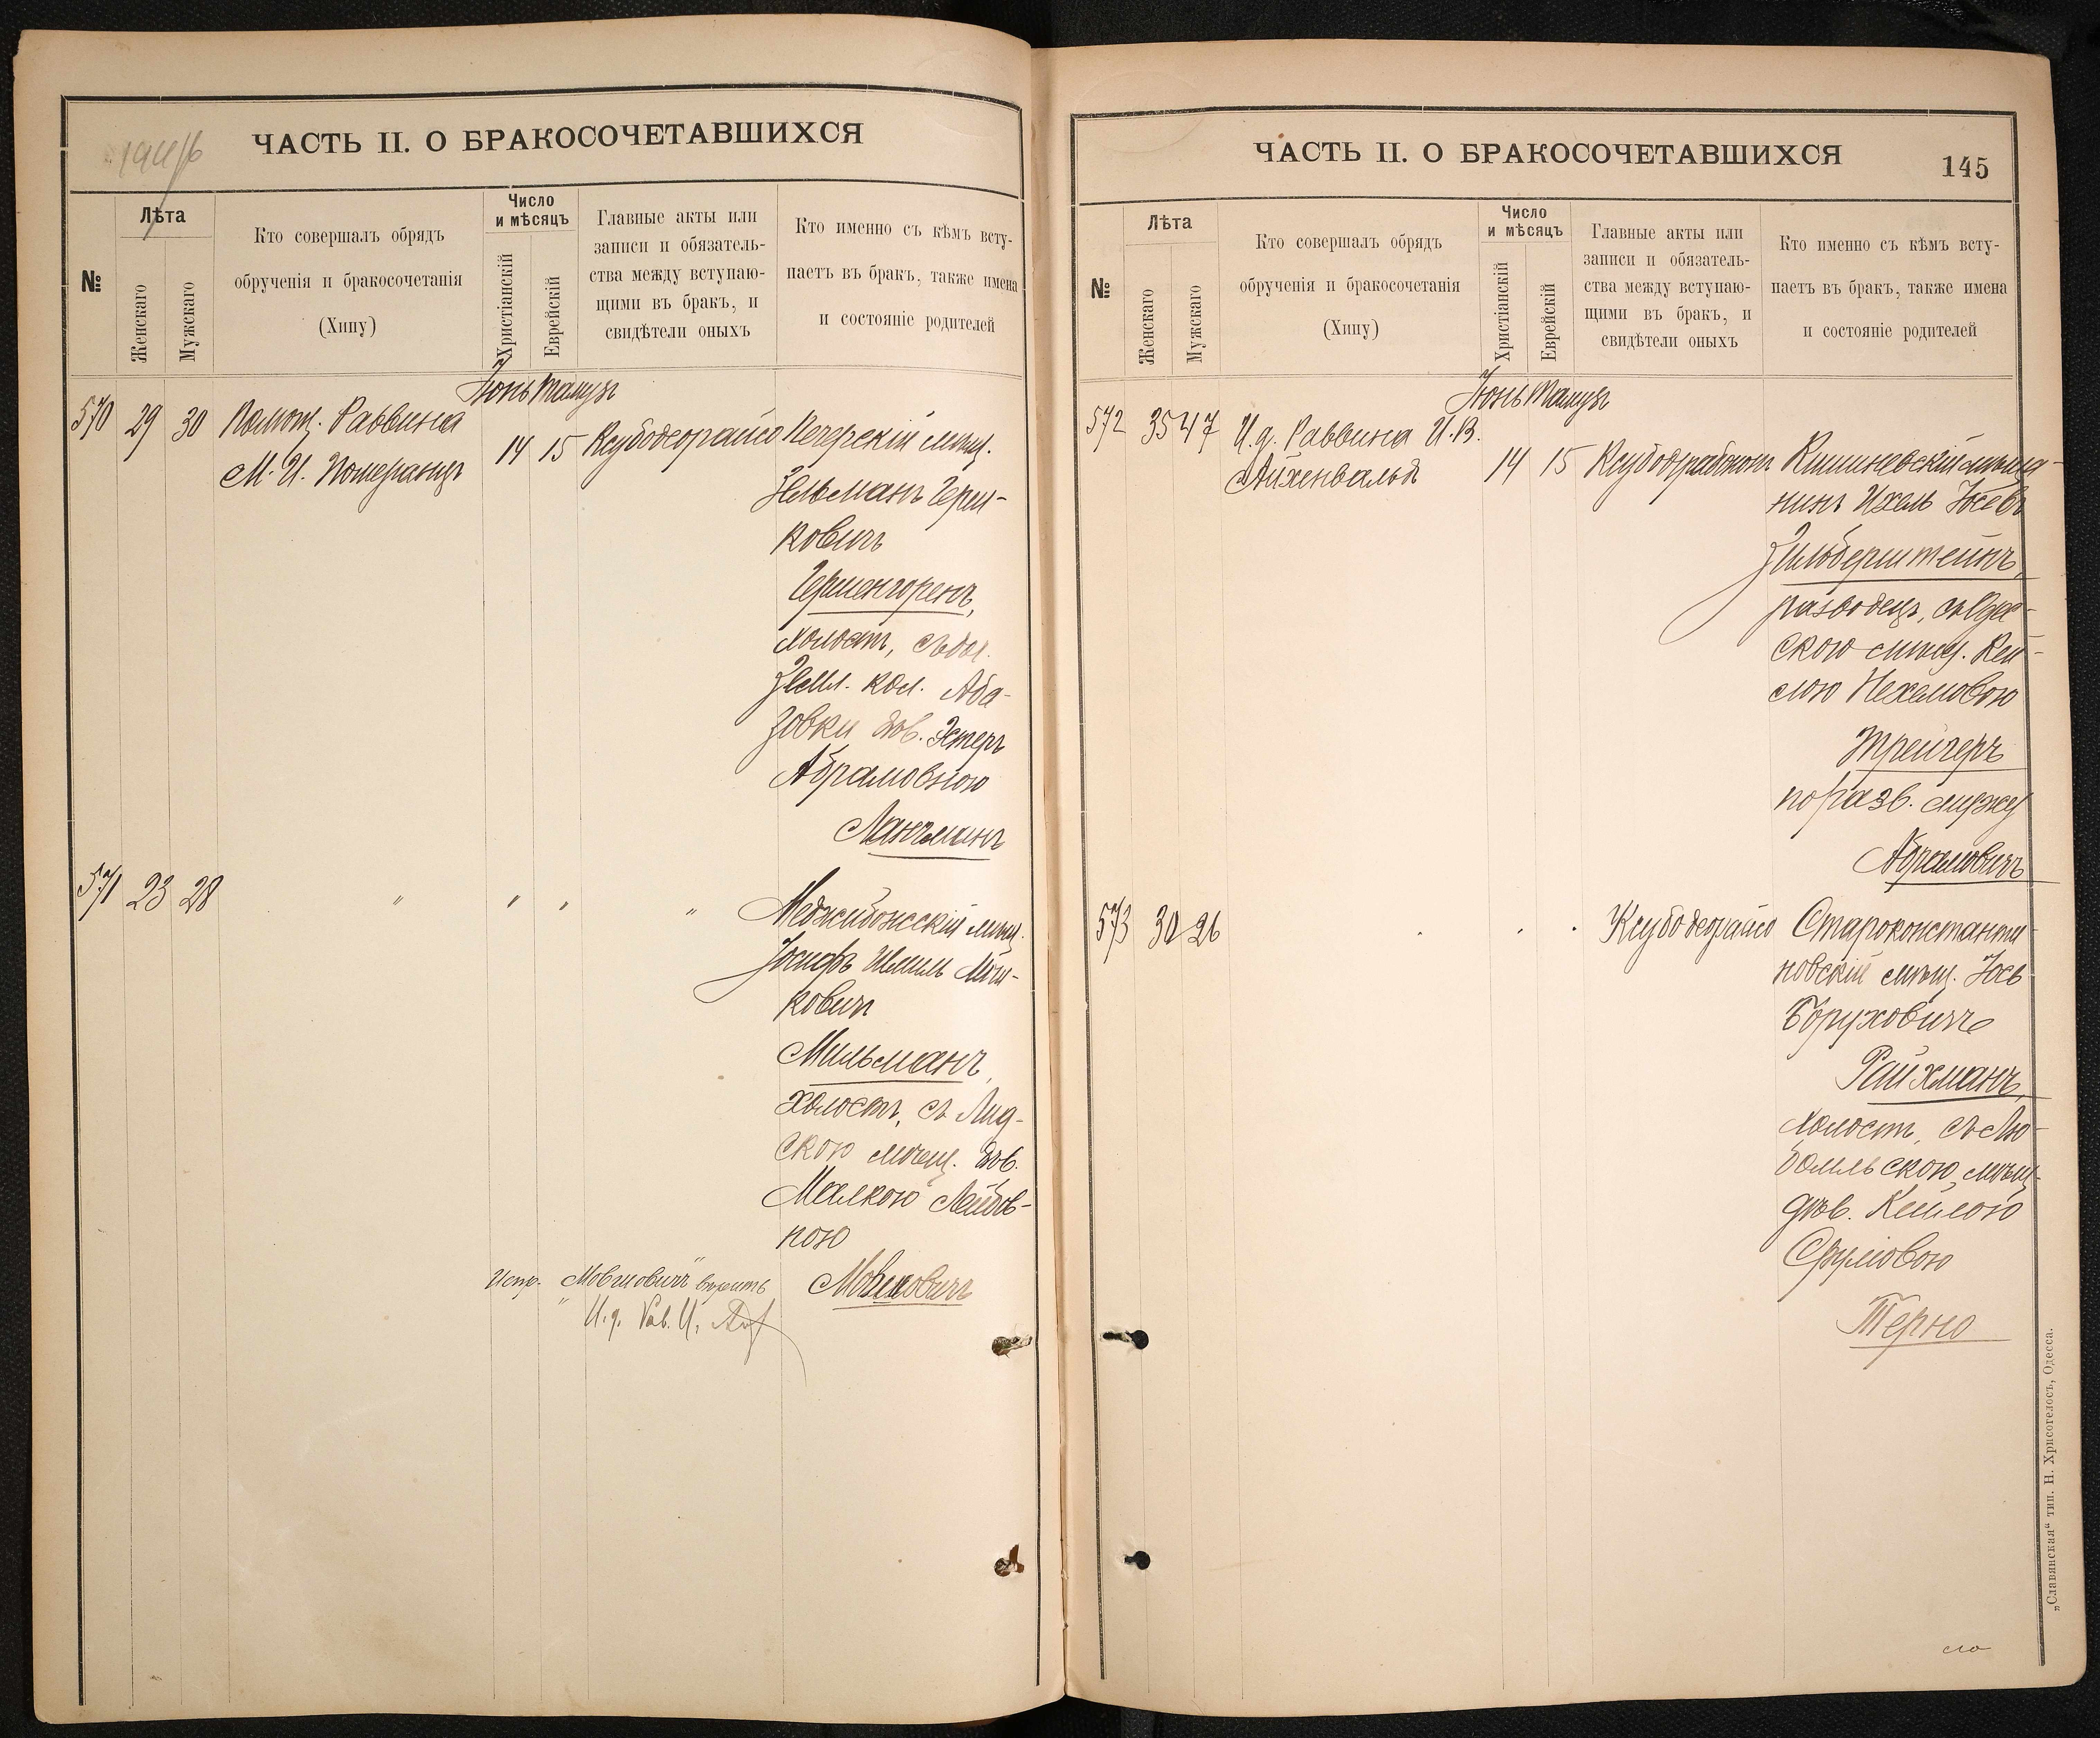 ЧАСТЬ II. О БРАКОСОЧЕТАВШИХСЯ
№
Лѣта
Женскаго
Мужскаго
Кто совершалъ обрядъ
обрученія и бракосочетанія
(Хипу)
Число
и мѣсяцъ
Христіанскій
Еврейскій
Главные акты или
записи и обязатель-
ства между вступаю-
щими въ бракъ, и
свидѣтели оныхъ
Кто именно съ кѣмъ всту-
паетъ въ бракъ, также имена
и состояніе родителей
Іюнь Тамузъ
570 29 30 Помощ. Раввина
М. И. Померанцъ
14 15 Ксубодеорайсо
Печерскій мѣщ.
Зельманъ Герш-
ковичъ
Гершенгоренъ,
холостъ, съ доч.
Земл. кол. Аба-
зовки дѣв. Эстеръ
Абрамовною
571 23 28 " " " "
Меджибожскій мѣщ.
Іосифъ Шмиль Мош-
ковичъ
Мильманъ,
холостъ, съ Лид-
скою мѣщ. дѣв.
Малкою Лейбов-
ною
Мовшовичъ
Испр. "Мовшовичъ" вѣрить
И. д. Рав. И.
ЧАСТЬ II. О БРАКОСОЧЕТАВШИХСЯ
145
№
Лѣта
Женскаго
Мужскаго
Кто совершалъ обрядъ
обрученія и бракосочетанія
(Хипу)
Число
и мѣсяцъ
Христіанскій
Еврейскій
Главные акты или
записи и обязатель-
ства между вступаю-
щими въ бракъ, и
свидѣтели оныхъ
Кто именно съ кѣмъ всту-
паетъ въ бракъ, также имена
и состояніе родителей
Іюнь Тамузъ
572 35 47 И. д. Раввина И. В.
Айхенвальд
14 15
Кишиневскій мѣща-
нинъ Ихель Іосевъ
Зильберштейнъ,
разводецъ, съ Оде-
скою мѣщ. Кей-
лою Нехемовою
Трейгеръ
по разв. мужу
Абрамовичъ
573 30 26
Ксубодеорайсо
Староконстанти-
новскій мѣщ. Іось
Боруховичъ
Райхманъ,
холостъ, съ Лю-
бомльскою мѣщ.
дѣв. Кейлою
Сруловою
Терно
„Славянская“ тип. Н. Хрисогелосъ, Одесса.